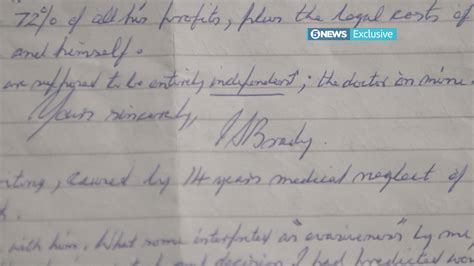 72% of all his profits, plus the legal costs of
5 NEWS Exclusive
and himself.
are supposed to be entirely independent; the doctor in mine
Yours sincerely,
I S Brady.
writing, caused by 14 years medical neglect of
with him. What some interpreted as "evasiveness" by me
and decision I had predicted